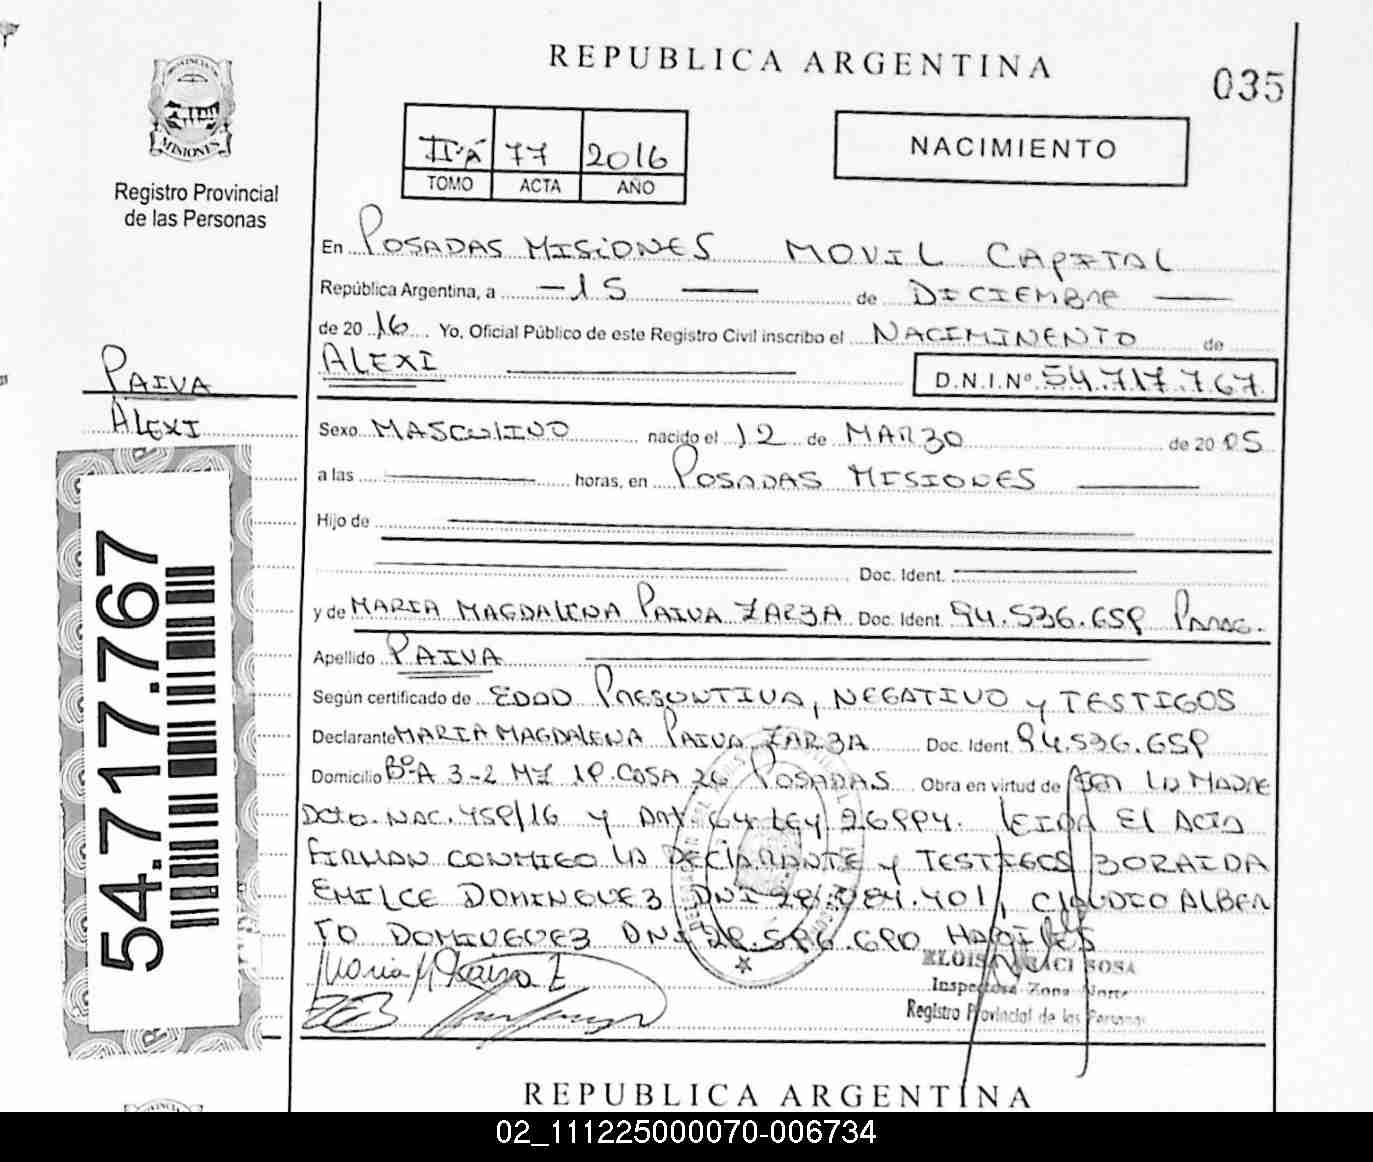 REPUBLICA ARGENTINA
035
PROVINCIA DE
MISIONES
Registro Provincial
de las Personas
IIºA 77 2016
TOMO ACTA AÑO
NACIMIENTO
En POSADAS MISIONES MOVIL CAPITAL
República Argentina, a -15 de DICIEMBRE
de 20 16 Yo, Oficial Público de este Registro Civil inscribo el NACIMINENTO de
ALEXI
D.N.I.Nº 54.717.767
PAIVA
ALEXI
Sexo MASCULINO nacido el 12 de MARZO de 2005
a las horas, en POSADAS MISIONES
Hijo de
Doc. Ident.
y de MARIA MAGDALENA PAIVA ZARZA Doc. Ident. 94.536.659 PARAG.
Apellido PAIVA
Según certificado de EDAD PRESUNTIVA, NEGATIVO y TESTIGOS
Declarante MARIA MAGDALENA PAIVA ZARZA Doc. Ident. 94.536.659
Domicilio BºA 3-2 MZ 19.CASA 26 POSADAS Obra en virtud de SER LA MADRE
DCTO.NAC.459/16 Y ART. 64 LEY 26994. LEIDA EL ACTA
FIRMAN CONMIGO LA DECLARANTE y TESTIGOS ZORAIDA
EMILCE DOMINGUEZ DNI 28.084.401, CLAUDIO ALBER
TO DOMINGUEZ DNI 29.596.690 HABILES
Maria M Paiva Z
SOSA
Inspectora Zona Norte
Registro Provincial de las Personas
54.717.767
REPUBLICA ARGENTINA
02_111225000070-006734